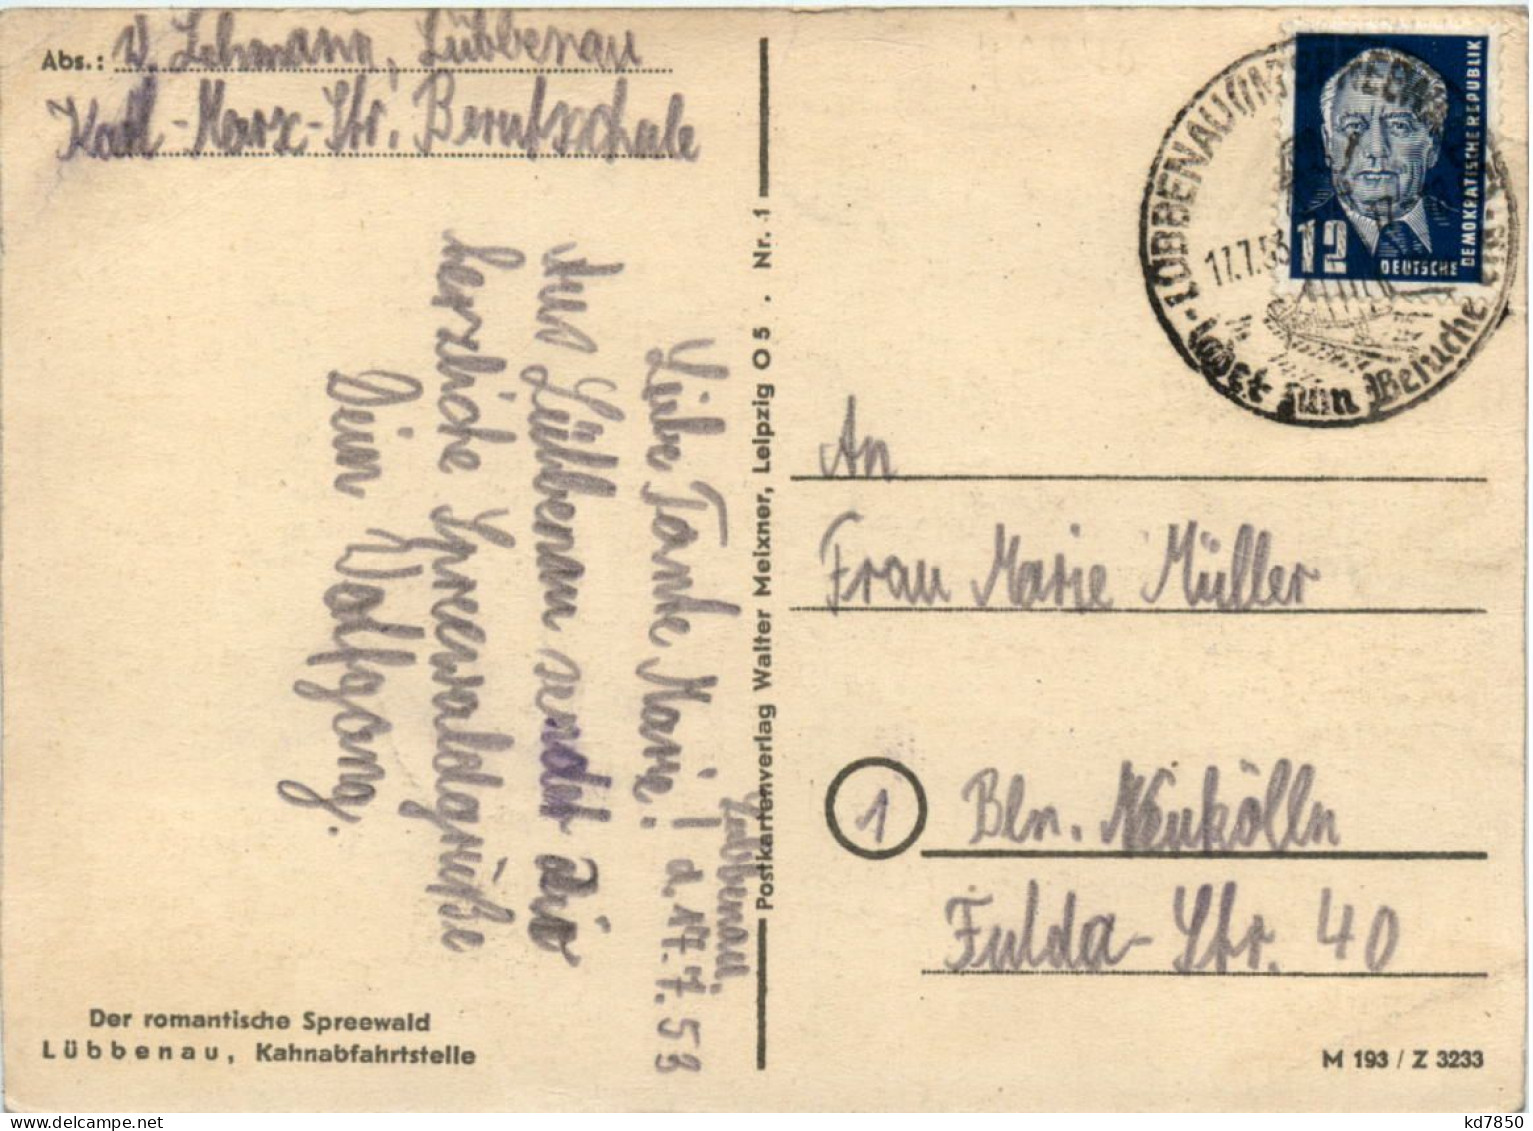 Abs.: W. Lehmann, Lübbenau
Karl-Marx-Str. Berufsschule
Lübbenau,
d. 17.7.53
Liebe Tante Marie!
Aus Lübbenau sendet dir
herzliche Spreewaldgrüße
Dein Wolfgang.
Der romantische Spreewald
Lübbenau, Kahnabfahrtstelle
Postkartenverlag Walter Meixner, Leipzig O 5 . Nr. 1
LÜBBENAU (IM SPREEWALD)
17.7.53
Ladet zum Besuche
12
DEUTSCHE
DEMOKRATISCHE REPUBLIK
An
Frau Marie Müller
1
Bln. Neukölln
Fulda-Str. 40
M 193 / Z 3233
kd7850